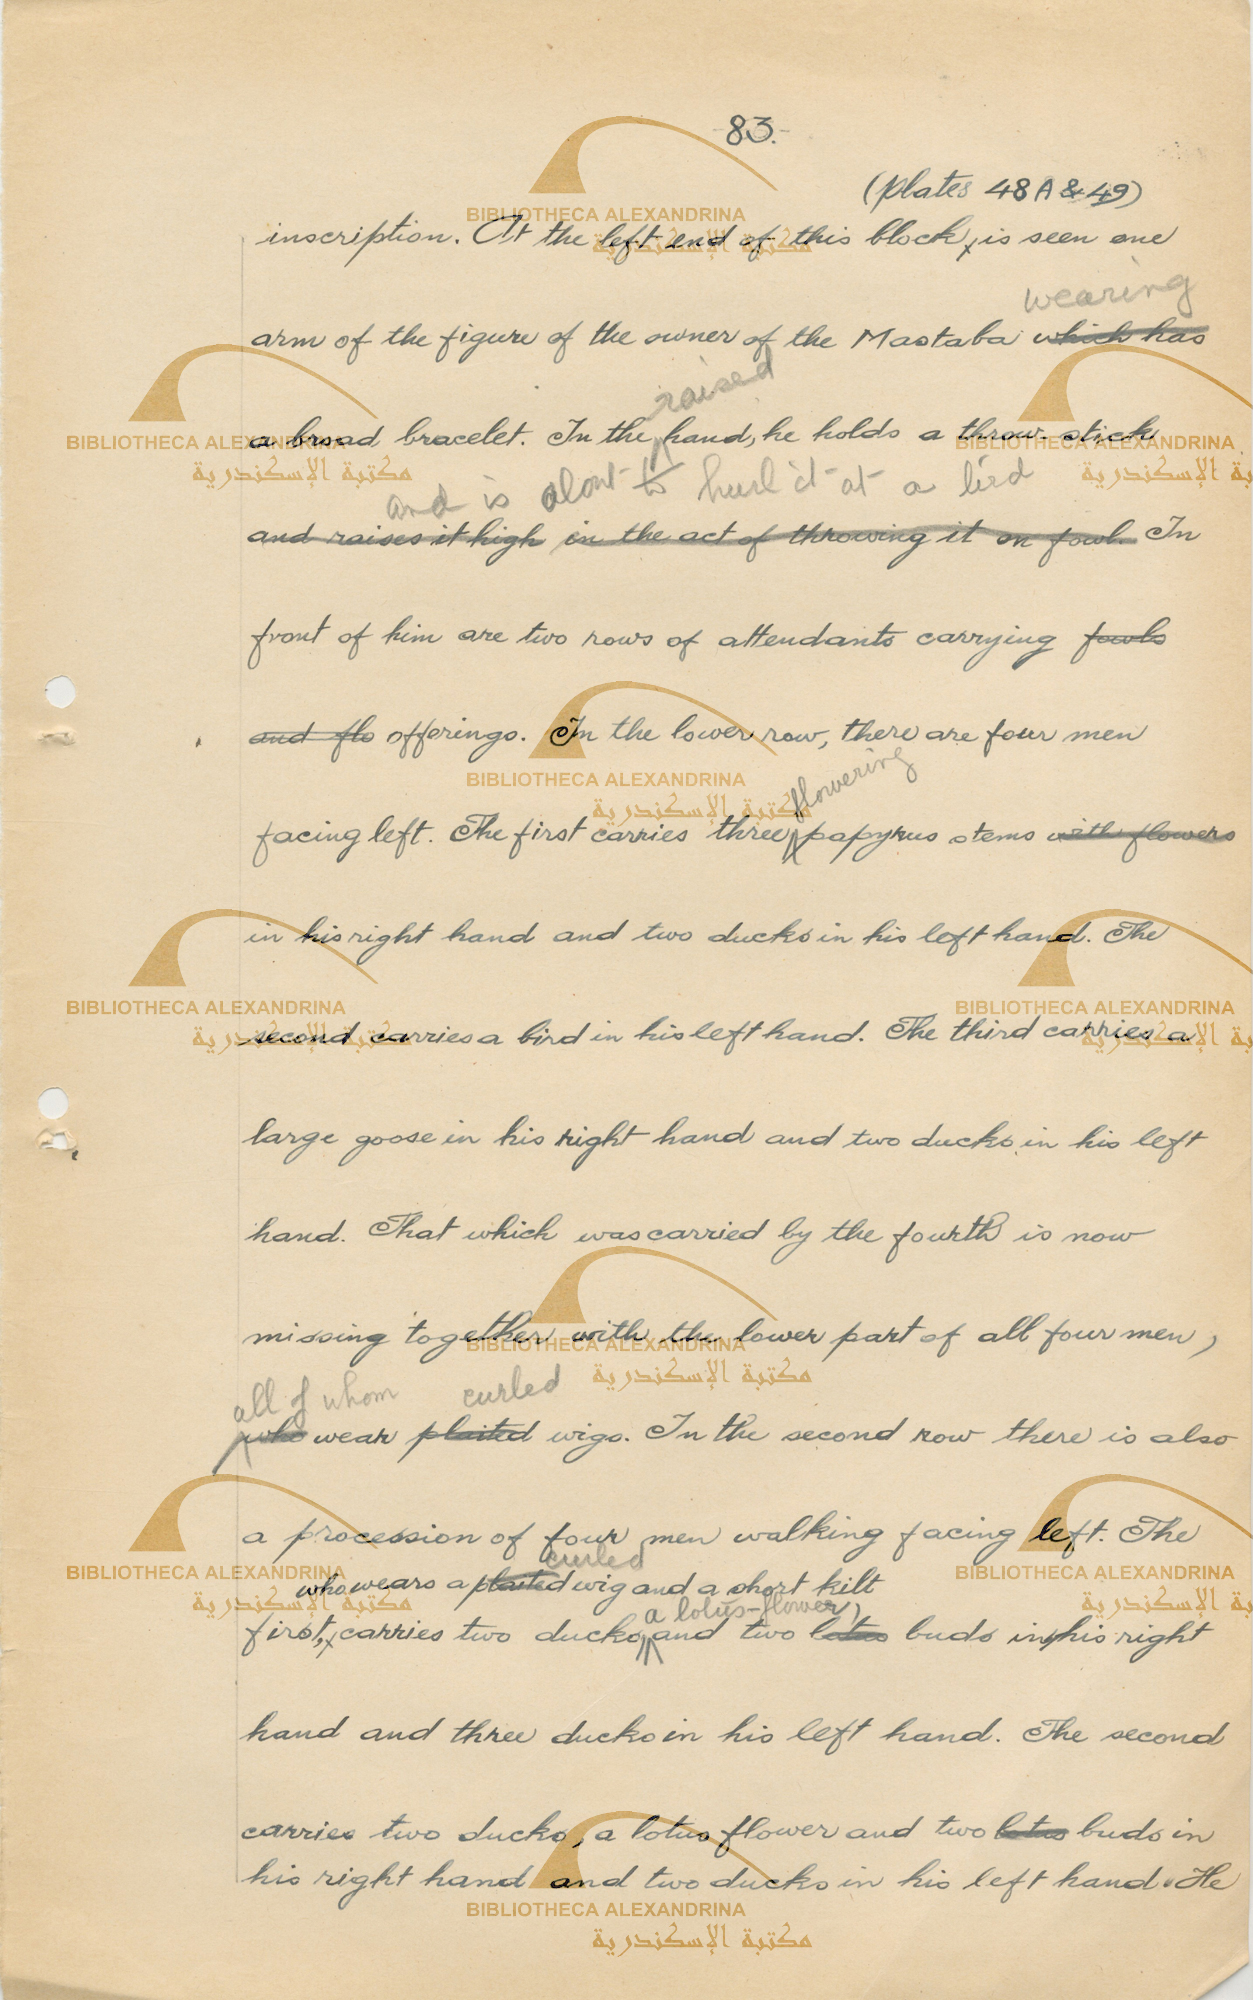 -83.-
(plates 48 A & 49)
inscription. At the left end of this block, is seen one
wearing
arm of the figure of the owner of the Mastaba which has
raised
a broad bracelet. In the hand, he holds a throw-stick
and is about to hurl it at a bird
and raises it high in the act of throwing it on fowl. In
front of him are two rows of attendants carrying fowls
and flo offerings. In the lower row, there are four men
flowering
facing left. The first carries three papyrus stems with flowers
in his right hand and two ducks in his left hand. The
second carries a bird in his left hand. The third carries a
large goose in his right hand and two ducks in his left
hand. That which was carried by the fourth is now
missing together with the lower part of all four men,
all of whom curled
who wear plaited wigs. In the second row there is also
a procession of four men walking facing left. The
curled
who wears a plaited wig and a short kilt
a lotus-flower,
first, carries two ducks and two lotus buds in his right
hand and three ducks in his left hand. The second
carries two ducks, a lotus flower and two lotus buds in
his right hand and two ducks in his left hand. He
BIBLIOTHECA ALEXANDRINA
مكتبة الإسكندرية